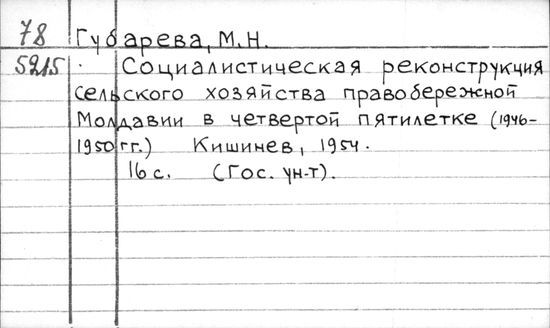 78 Губарева, М.Н.
5215 Социалистическая реконструкция
сельского хозяйства правобережной
Молдавии в четвертой пятилетке (1946-
1950 гг.) Кишинев, 1954.
16 с. (Гос. ун-т).